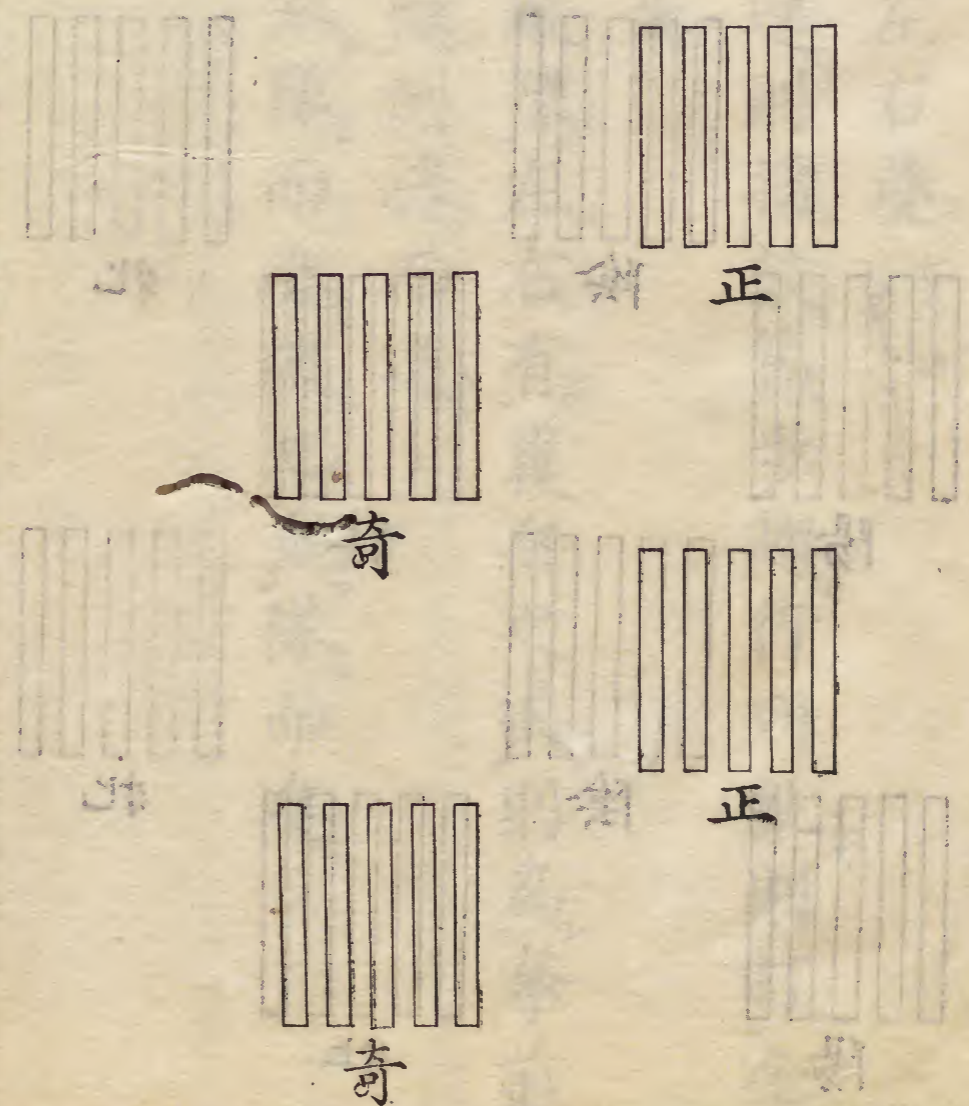 正
奇
正
奇